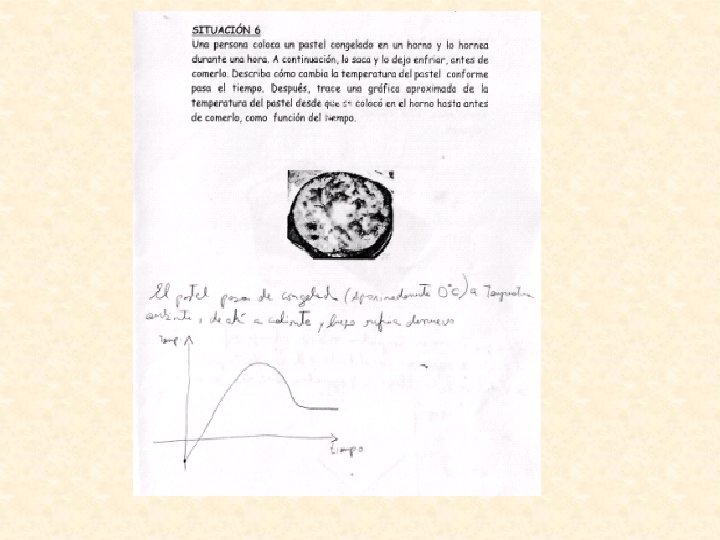 SITUACIÓN 6
Una persona coloca un pastel congelado en un horno y lo hornea
durante una hora. A continuación, lo saca y lo deja enfriar, antes de
comerlo. Describa cómo cambia la temperatura del pastel conforme
pasa el tiempo. Después, trace una gráfica aproximada de la
temperatura del pastel desde que se colocó en el horno hasta antes
de comerlo, como función del tiempo.
El pastel pasa de congelado (aproximadamente 0°C) a Temperatura
ambiente, de ahí a caliente y luego
Temp
tiempo